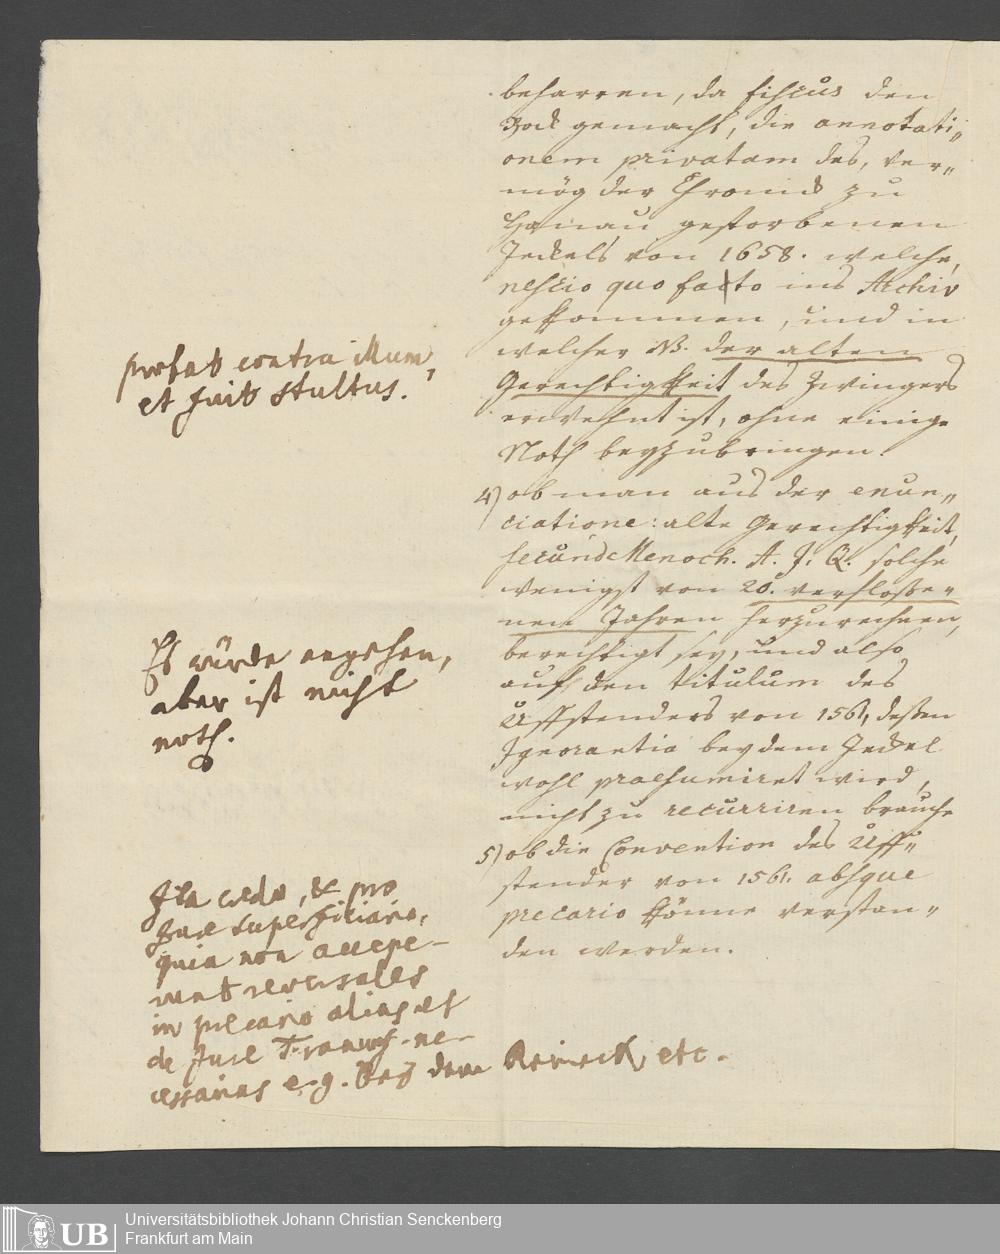 beharren, da fiscus den
Bock gemacht, die annotati„
onem privatam des, ver„
mög der Chronick zu
Hanau gestorbenen
Jeckels von 1658. welche,
nescio quo facto ins Archiv
gekommen, und in
welcher NB. der alten
Gerechtigkeit des Zwingers
erwehnt ist, ohne einige
Noth beyzubringen.
probat contra illum,
et fuit stultus.
4) ob man aus der enun„
ciatione: alte Gerechtigkeit,
secund. Menoch. A. J. Q. solche
wenigst von 20. verfloße„
nen Jahren herzurechnen,
berechtigt sey, und also
auf den titulum des
Uffstenders von 1561, deßen
Ignorantia bey dem Jeckel
wohl praesumiret wird,
nicht zu recurriren brauche
Es würde angehen,
aber ist nicht
noth.
5) ob die Convention des Uff„
stender von 1561. absque
precario könne verstan„
den werden.
Ita credo, & pro
Jure superficiario,
quia non accepe-
runt reversales
in precario alias et
de Jure Francof. ne-
cessarias e.g. bey dem Reineck, etc.
Universitätsbibliothek Johann Christian Senckenberg
Frankfurt am Main
UB